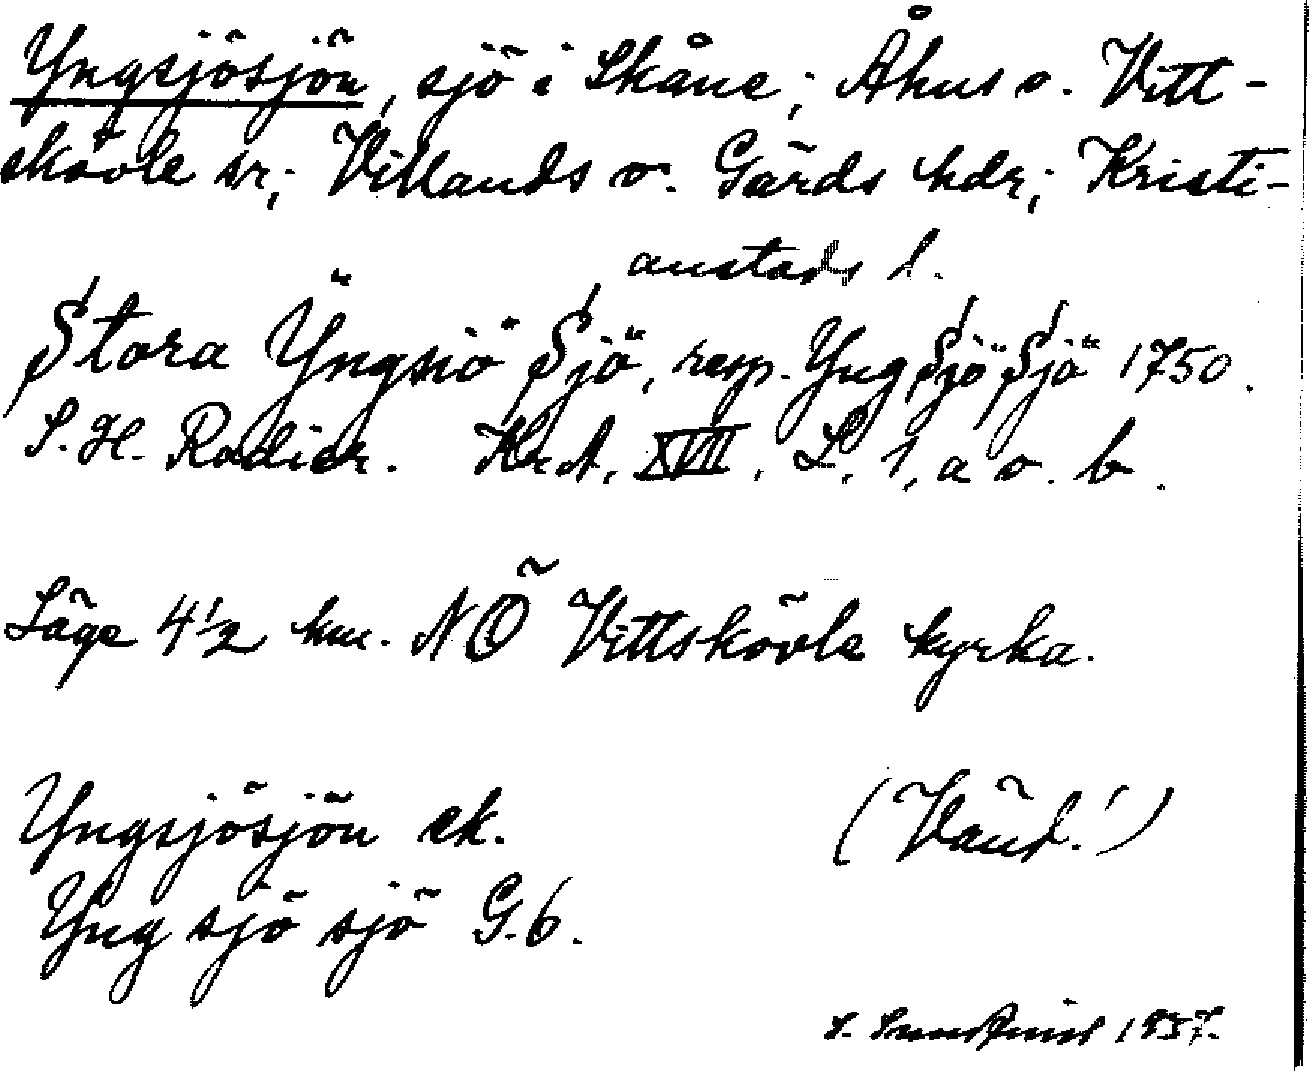 Yngsjösjön, sjö i Skåne; Åhus o. Vitt-
skövle snr; Villands o. Gärds hdr; Kristi-
anstads l.
Stora Ÿngsiö Sjö, resp. Yng Sjö Sjö 1750.
S. H. Radier. KrA, XVII, L. 1, a o. b.
Läge 4 1/2 km. NÖ Vittskövle kyrka.
Yngsjösjön ek. (Vänd!)
Yng sjö sjö G.6.
1957.